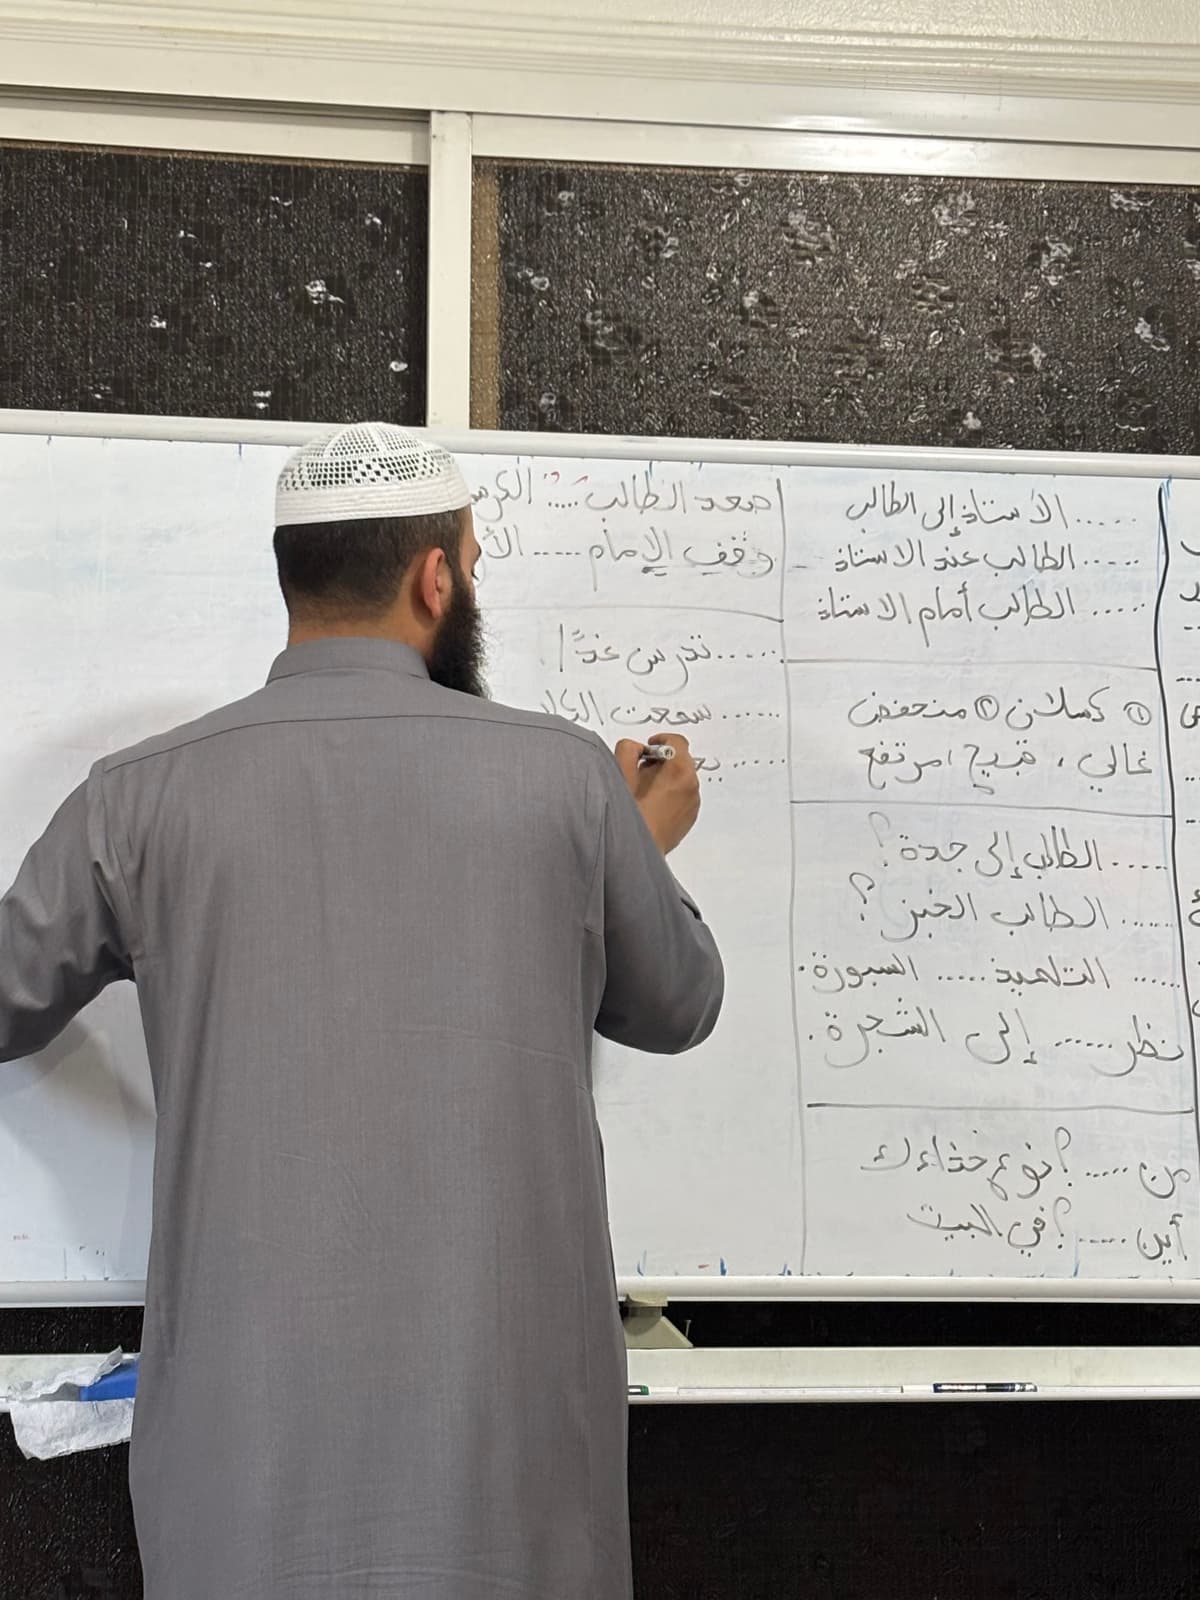 ..... الأستاذ إلى الطالب
..... الطالب عند الاستاذ
..... الطالب أمام الاستاذ
① كسلان ② منخفض
غالي ، قبيح ، مرتفع
..... الطالب إلى جدة ؟
..... الطالب الخبز ؟
..... التلميذ ..... السبورة .
نظر ..... إلى الشجرة .
من ..... ؟ نوع حذاءك
أين ..... ؟ في البيت
صعد الطالب .....
وقف الإمام .....
..... ندرس غدًا .
..... سمعت